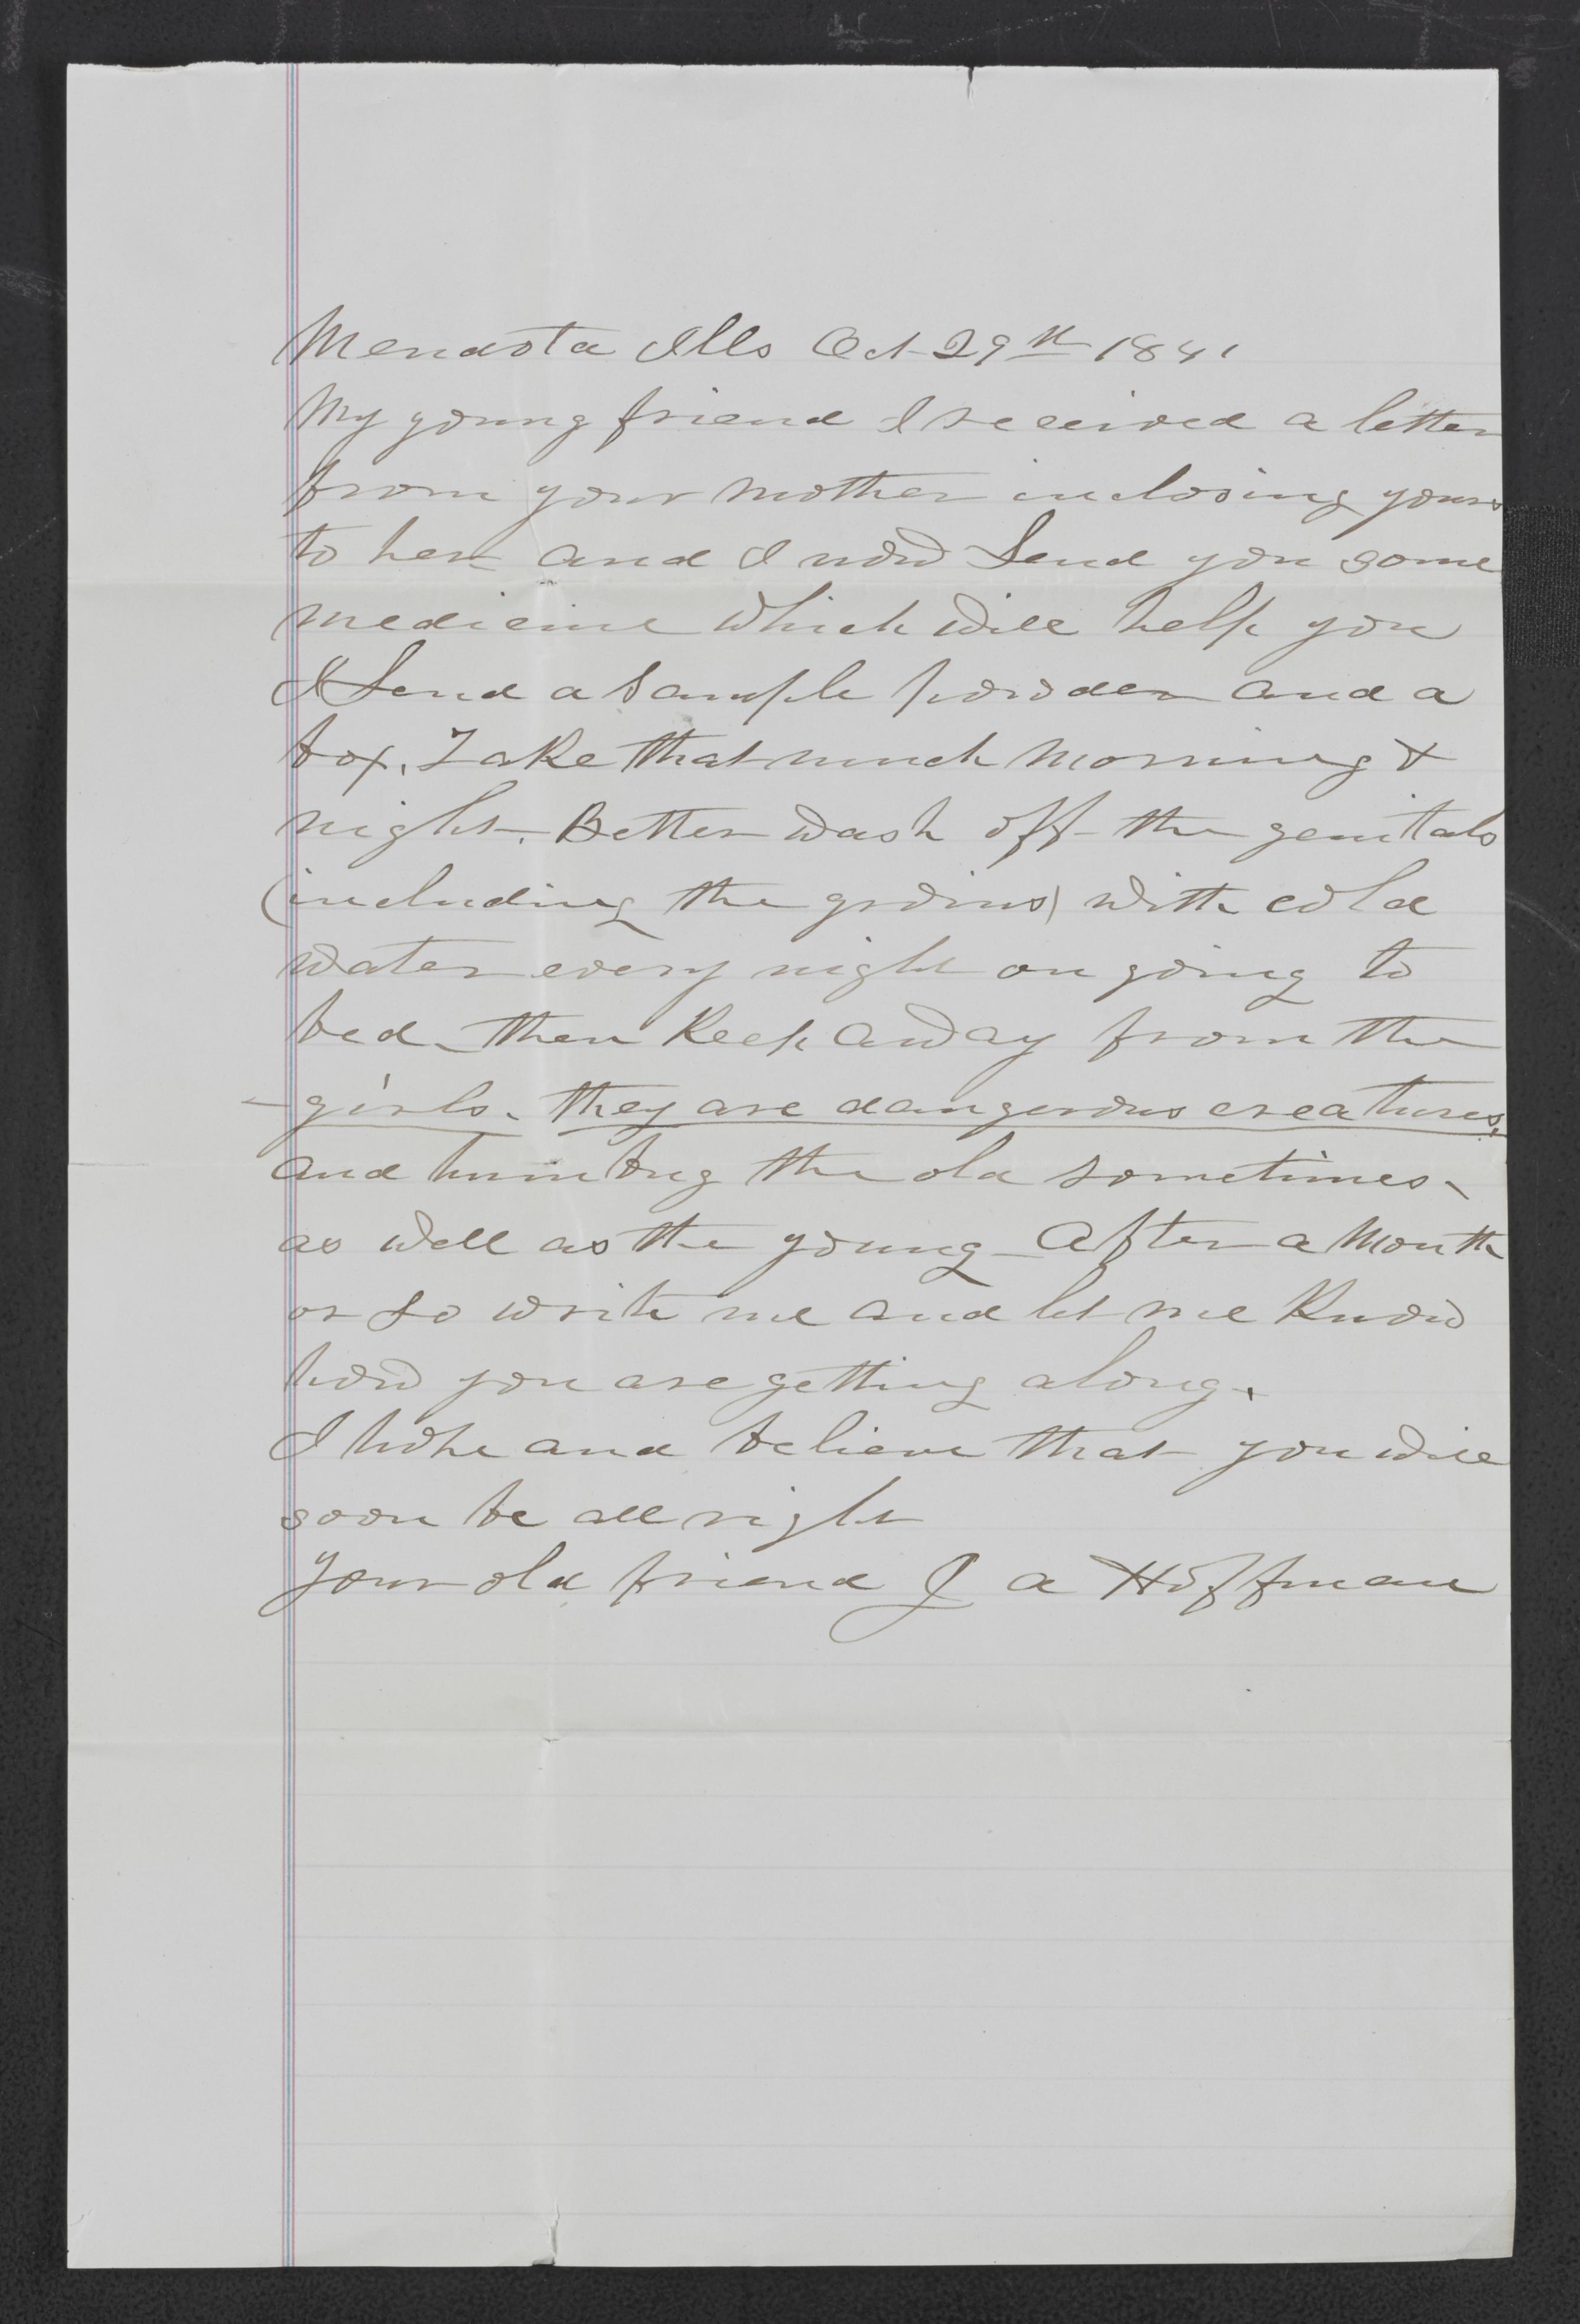 Mendota Ills Oct 29th 1881
My young friend I received a letter
from your mother inclosing yours
to her and I now Send you some
medicine which will help you
I Send a Sample powder and a
box. Take that much morning &
night. Better wash off the genitals
(including the groins) with cold
water every night on going to
bed then Keep away from the
girls. they are dangerous creatures,
and humbug the old sometimes
as well as the young After a Month
or So write me and let me Know
how you are getting along.
I hope and believe that you will
soon be all right
Your old friend J A Hoffman